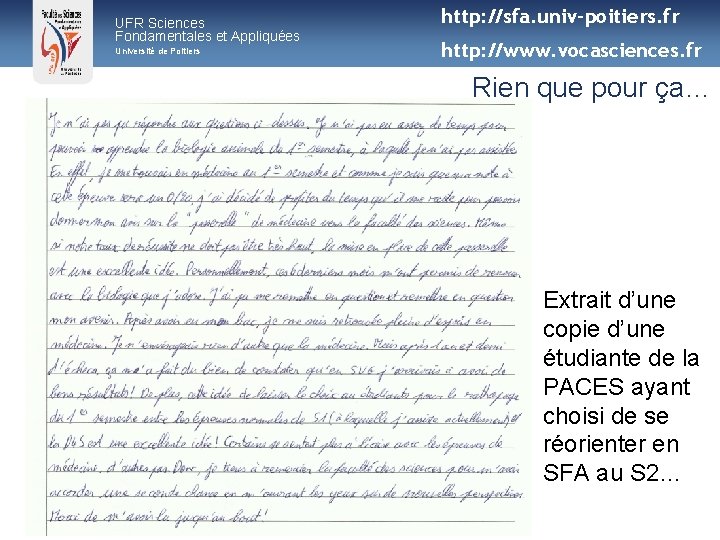 UFR Sciences
Fondamentales et Appliquées
Université de Poitiers
Faculté des Sciences
Fondamentales
et Appliquées
Université
de Poitiers
http://sfa.univ-poitiers.fr
http://www.vocasciences.fr
Rien que pour ça…
Je n'ai pas pu répondre aux questions ci dessus. Je n'ai pas eu assez de temps pour
pouvoir apprendre la biologie animale du 1er semestre, à laquelle je n'ai pas assistée
En effet, je me trouvais en médecine au 1er semestre et comme je sais que ma note à
cette épreuve sera un 0/20, j'ai décidé de profiter du temps qu'il me reste pour
donner mon avis sur la "passerelle" de médecine vers la faculté des sciences. Même
si notre taux de réussite ne doit pas être très haut, la mise en place de cette passerelle
est une excellente idée. Personnellement, ces derniers mois m'ont permis de renouer
avec la biologie que j'adore. J'ai pu me remettre en question et remettre en question
mon avenir. Après avoir eu mon bac, je me suis retrouvée pleine d'espoirs en
médecine. Je n'envisageais rien d'autre que la médecine. Mais après 1 an et demi
d'échecs, ça m'a fait du bien de constater qu'en SVG j'arrivais à avoir de
bons résultats! De plus, cette idée de laisser le choix aux étudiants pour le rattrapage
du 1er semestre entre les épreuves normales de S1 (à laquelle j'assiste actuellement) et
la P4S est une excellente idée! Certains se sentent plus à l'aise avec les épreuves de
médecine, d'autres pas. Donc, je tiens à remercier la faculté des sciences pour m'avoir
accorder une seconde chance en m'ouvrant les yeux sur de nouvelles perspectives
Merci de m'avoir lu jusqu'au bout!
Extrait d’une
copie d’une
étudiante de la
PACES ayant
choisi de se
réorienter en
SFA au S2…